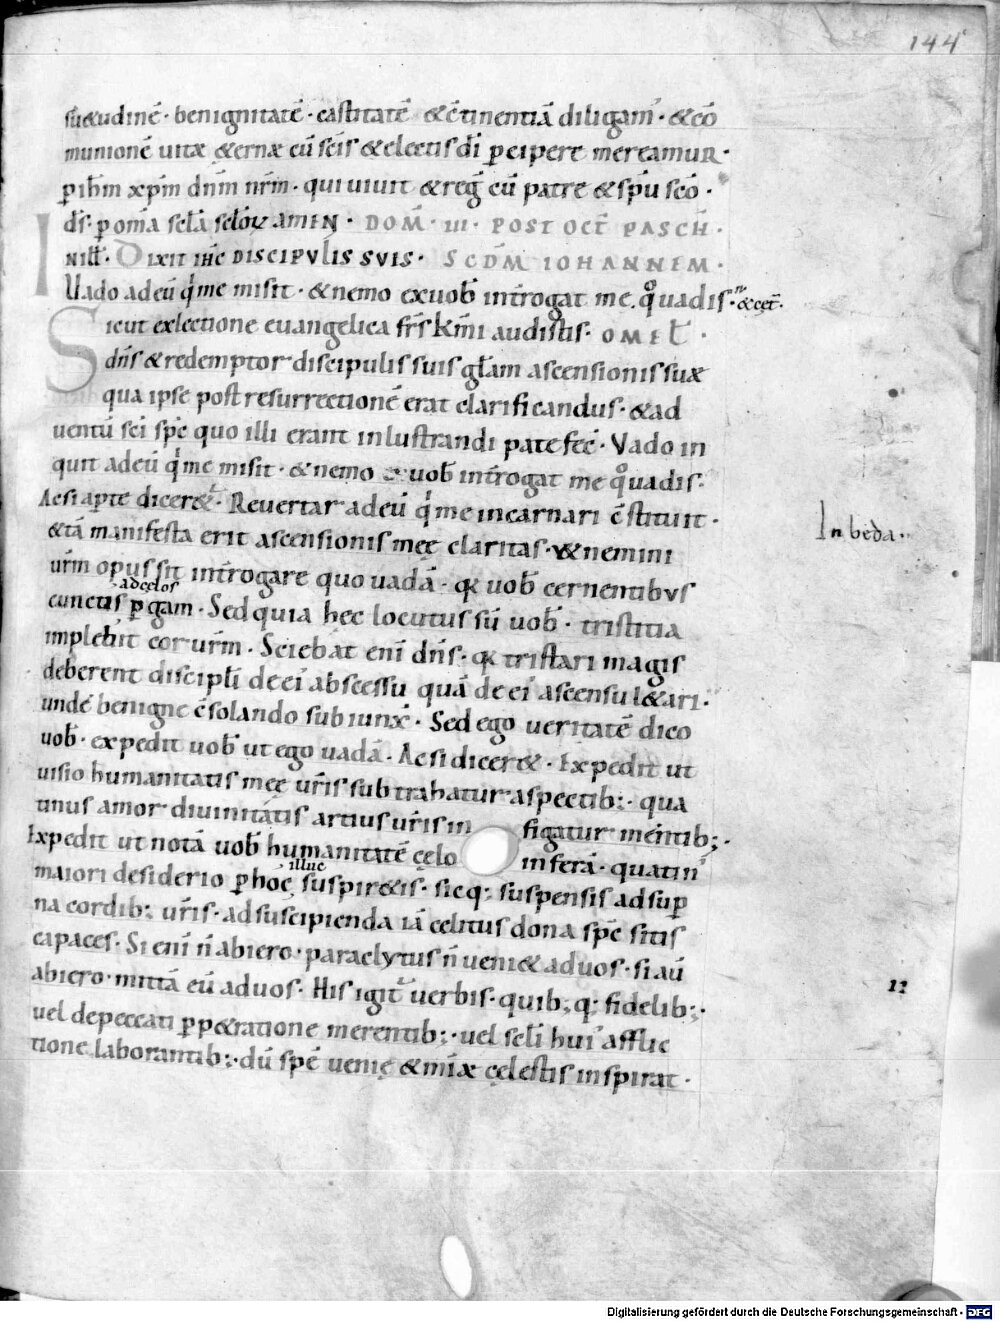 144
suetudinē · benignitatē · castitatē &c̄tinentiā diligam᷒ · &cō
munionē uitæ &ernæ cū sc̄is & electis dī ꝑcipere mereamur ·
ꝑ ih̄m xp̄m dn̄m nr̄m · qui uiuit & reḡ cū patre & sp̄u sc̄o ·
d̄s · ꝑ om̄a scl̄a scl̄oꝝ AMEN · DOM̄ · III · POST OCT̄ PASCH̄ ·
IN ILL̄ · DIXIT IH̄C DISCIPVLIS SVIS · SCDM̄ IOHANNEM ·
Uado adeū qͥ me misit · & nemo exuob̄ int̄rogat me qͦuadis · &cet̄ ·
Sicut exlectione euangelica fr̄s km̄i audistis · OMEL̄ ·
dn̄s & redemptor discipulis suis gl̄am ascensionis suæ
qua ipse post resurrectionē erat clarificandus · & ad
uentū sc̄i sp̄c quo illi erant inlustrandi patefec̄ · Vado in
quit adeū qͥ me misit · & nemo ex uob̄ int̄rogat me qͦuadis ·
Ac si aꝑte dicer& · Reuertar adeū qͥ me incarnari c̄stituit ·
& tā manifesta erit ascensionis meę claritas · ut nemini
ur̄m opus sit int̄rogare quo uadā · qa uob̄ cernentibus
adcęlos
cunctis ꝑgam · Sed quia hęc locutus sū uob̄ · tristitia
impleuit cor ur̄m · Sciebat enī dn̄s · qa tristari magis
deberent discipl̄i de ei᷒ abscessu quā de ei᷒ ascensu l&ari ·
unde benigne c̄solando subiunx̄ · Sed ego ueritatē dico
uob̄ · expedit uob̄ ut ego uadā · Ac si dicer& · Expedit ut
uisio humanitatis meę ur̄is subtrahatur aspectib; · qua
tinus amor diuinitatis artius ur̄is in figatur mentib; ·
Expedit ut notā uob̄ humanitatē cęlo inferā · quatin᷒
illuc
maiori desiderio ꝑ hoc suspir&is · sicq; suspensis ad suꝑ
na cordib; ur̄is · ad suscipienda iā cęlitus dona sp̄c sitis
capaces · Si enī n̄ abiero · paraclytus n̄ ueni& ad uos · si aū
abiero · mittā eū ad uos · His igit᷑ uerbis · quib; q; fidelib; ·
uel de peccati ꝑp&ratione merentib; · uel scl̄i hui᷒ afflic
tione laborantib; · dū spē uenię & mīæ cęlestis inspirat ·
In beda ·
12
Digitalisierung gefördert durch die Deutsche Forschungsgemeinschaft · DFG